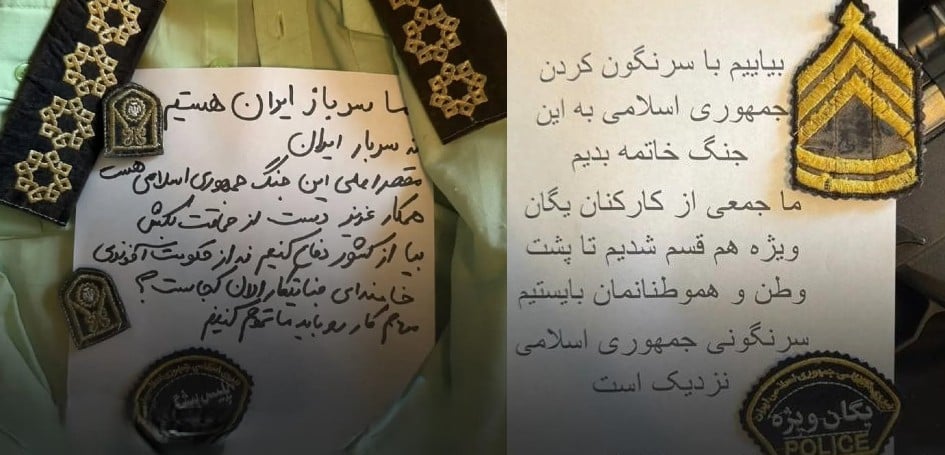 ما سرباز ایران هستیم
نه سربار ایران
مقصر اصلی این جنگ جمهوری اسلامی هست
همکار عزیز دست از خیانت بکش
بیا از کشور دفاع کنیم نه از حکومت آخوندی
خامنه‌ای جنایتکار الان کجاست؟
مردم کار رو باید تموم کنیم
بیاییم با سرنگون کردن
جمهوری اسلامی به این
جنگ خاتمه بدیم
ما جمعی از کارکنان یگان
ویژه هم قسم شدیم تا پشت
وطن و هموطنانمان بایستیم
سرنگونی جمهوری اسلامی
نزدیک است
نیروی انتظامی جمهوری اسلامی ایران
پلیس
نیروی انتظامی جمهوری اسلامی ایران
یگان ویژه
POLICE